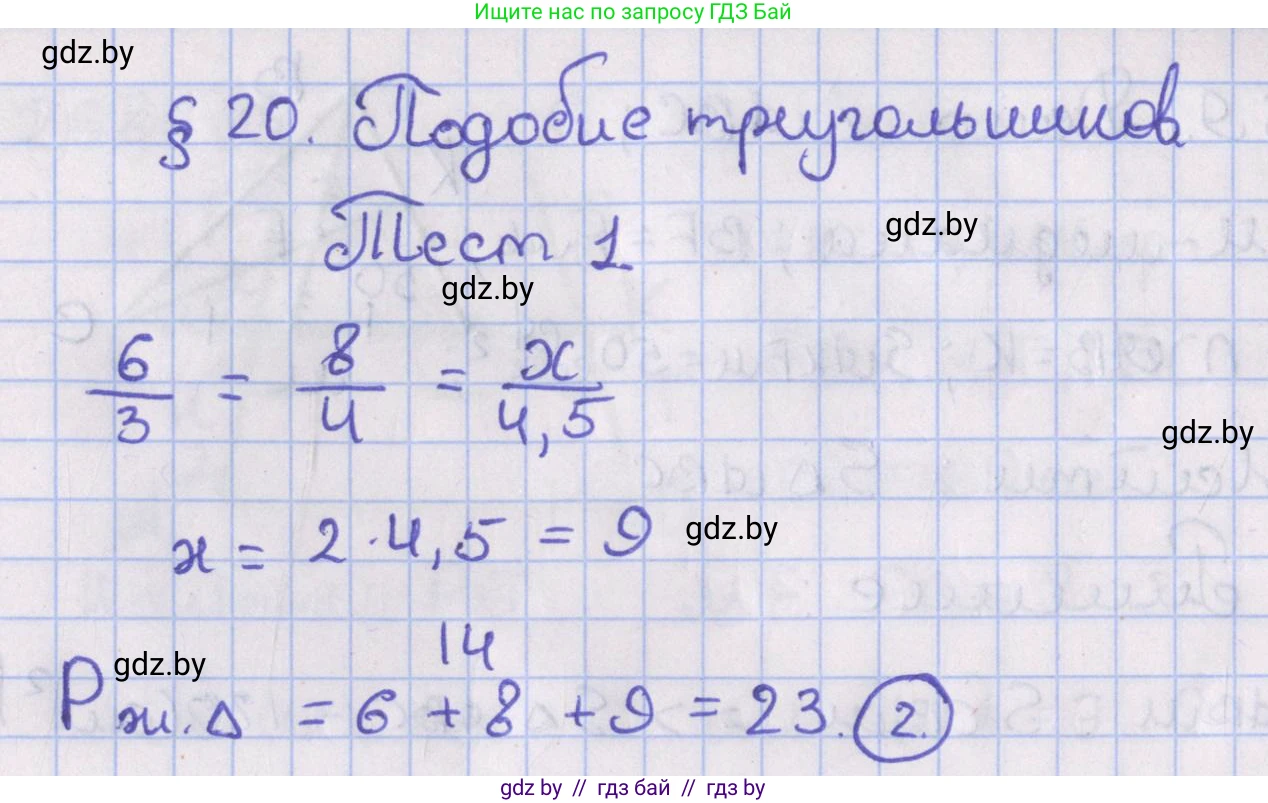 Ищите нас по запросу ГДЗ Бай
gdz.by
§ 20. Подобие треугольников
Тест 1
gdz.by
gdz.by
6/3 = 8/4 = x/4,5
gdz.by
x = 2 · 4,5 = 9
gdz.by
14
gdz.by
P ж.Δ = 6 + 8 + 9 = 23. 2.
gdz.by // гдз бай // гдз by